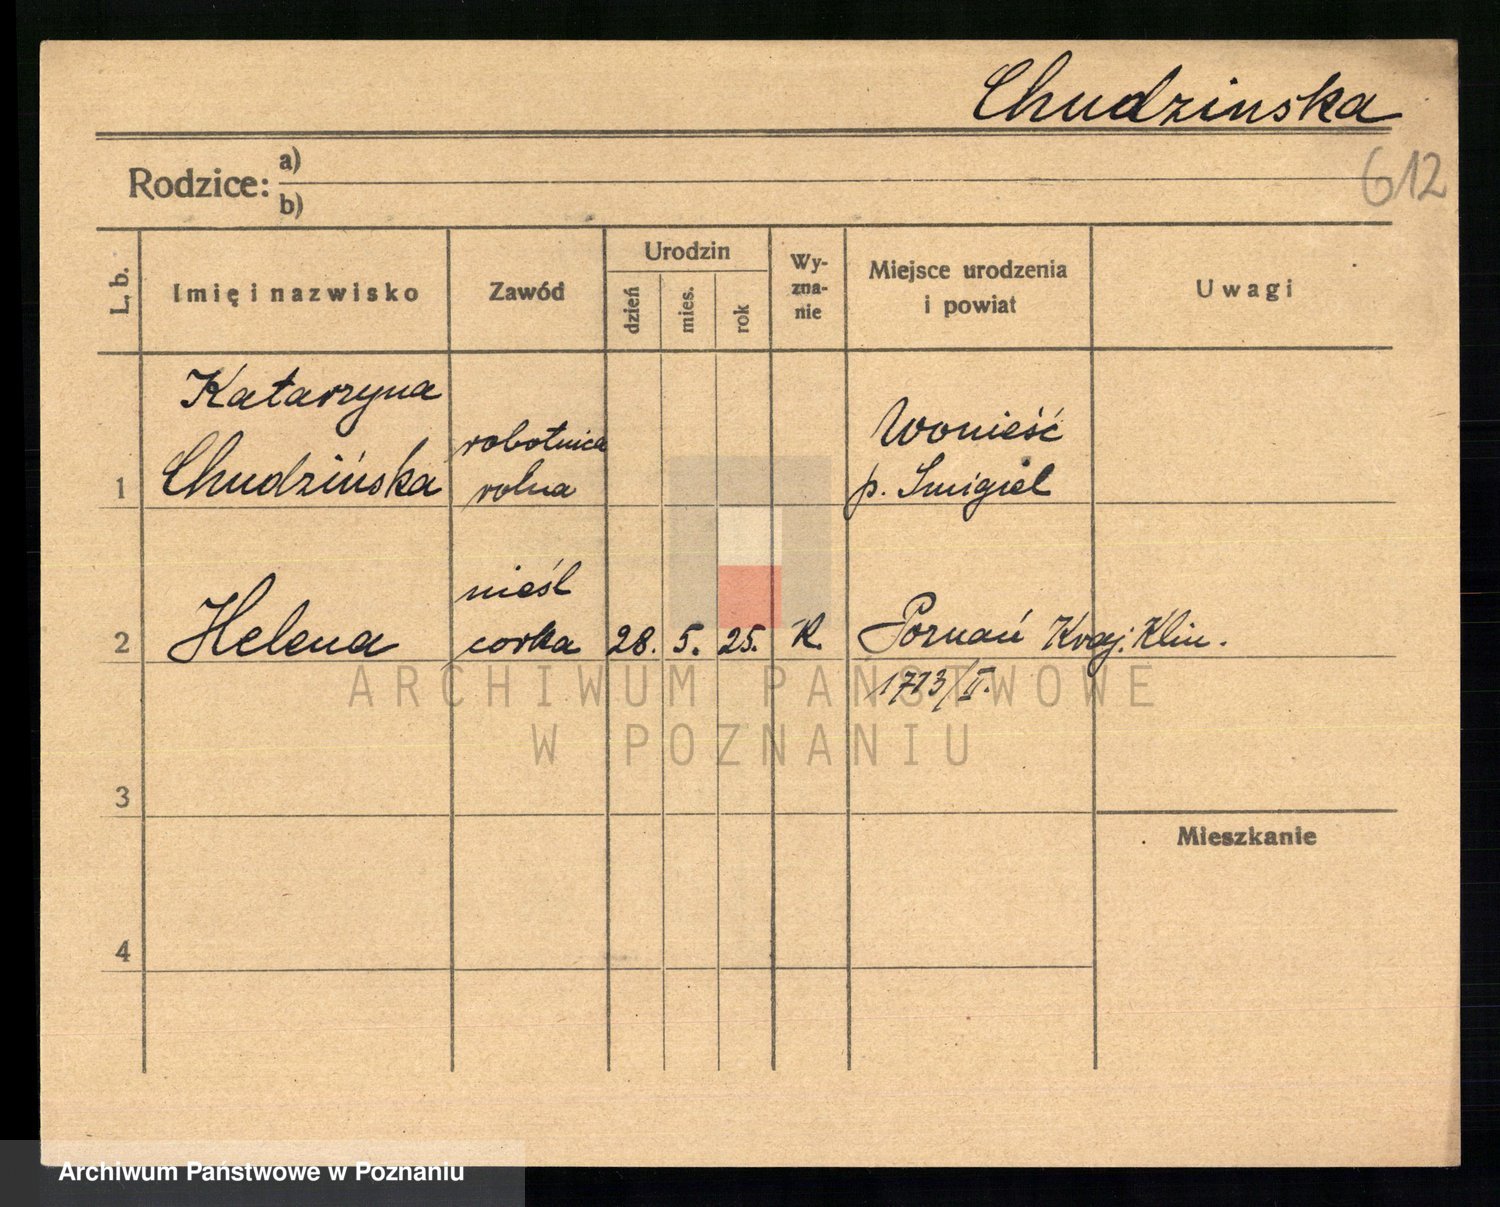 Chudzinska
612
Rodzice: a)
b)
L. b.
Imię i nazwisko
Zawód
Urodzin
dzień
mies.
rok
Wy-
zna-
nie
Miejsce urodzenia
i powiat
Uwagi
Katarzyna
Chudzińska
robotnica
rolna
Wonieść
p. Smigiel
1
nieśl
2 Helena corka 28. 5. 25. K. Poznań Kraj. Klin.
1713/II.
ARCHIWUM PAŃSTWOWE
W POZNANIU
3
Mieszkanie
4
Archiwum Państwowe w Poznaniu